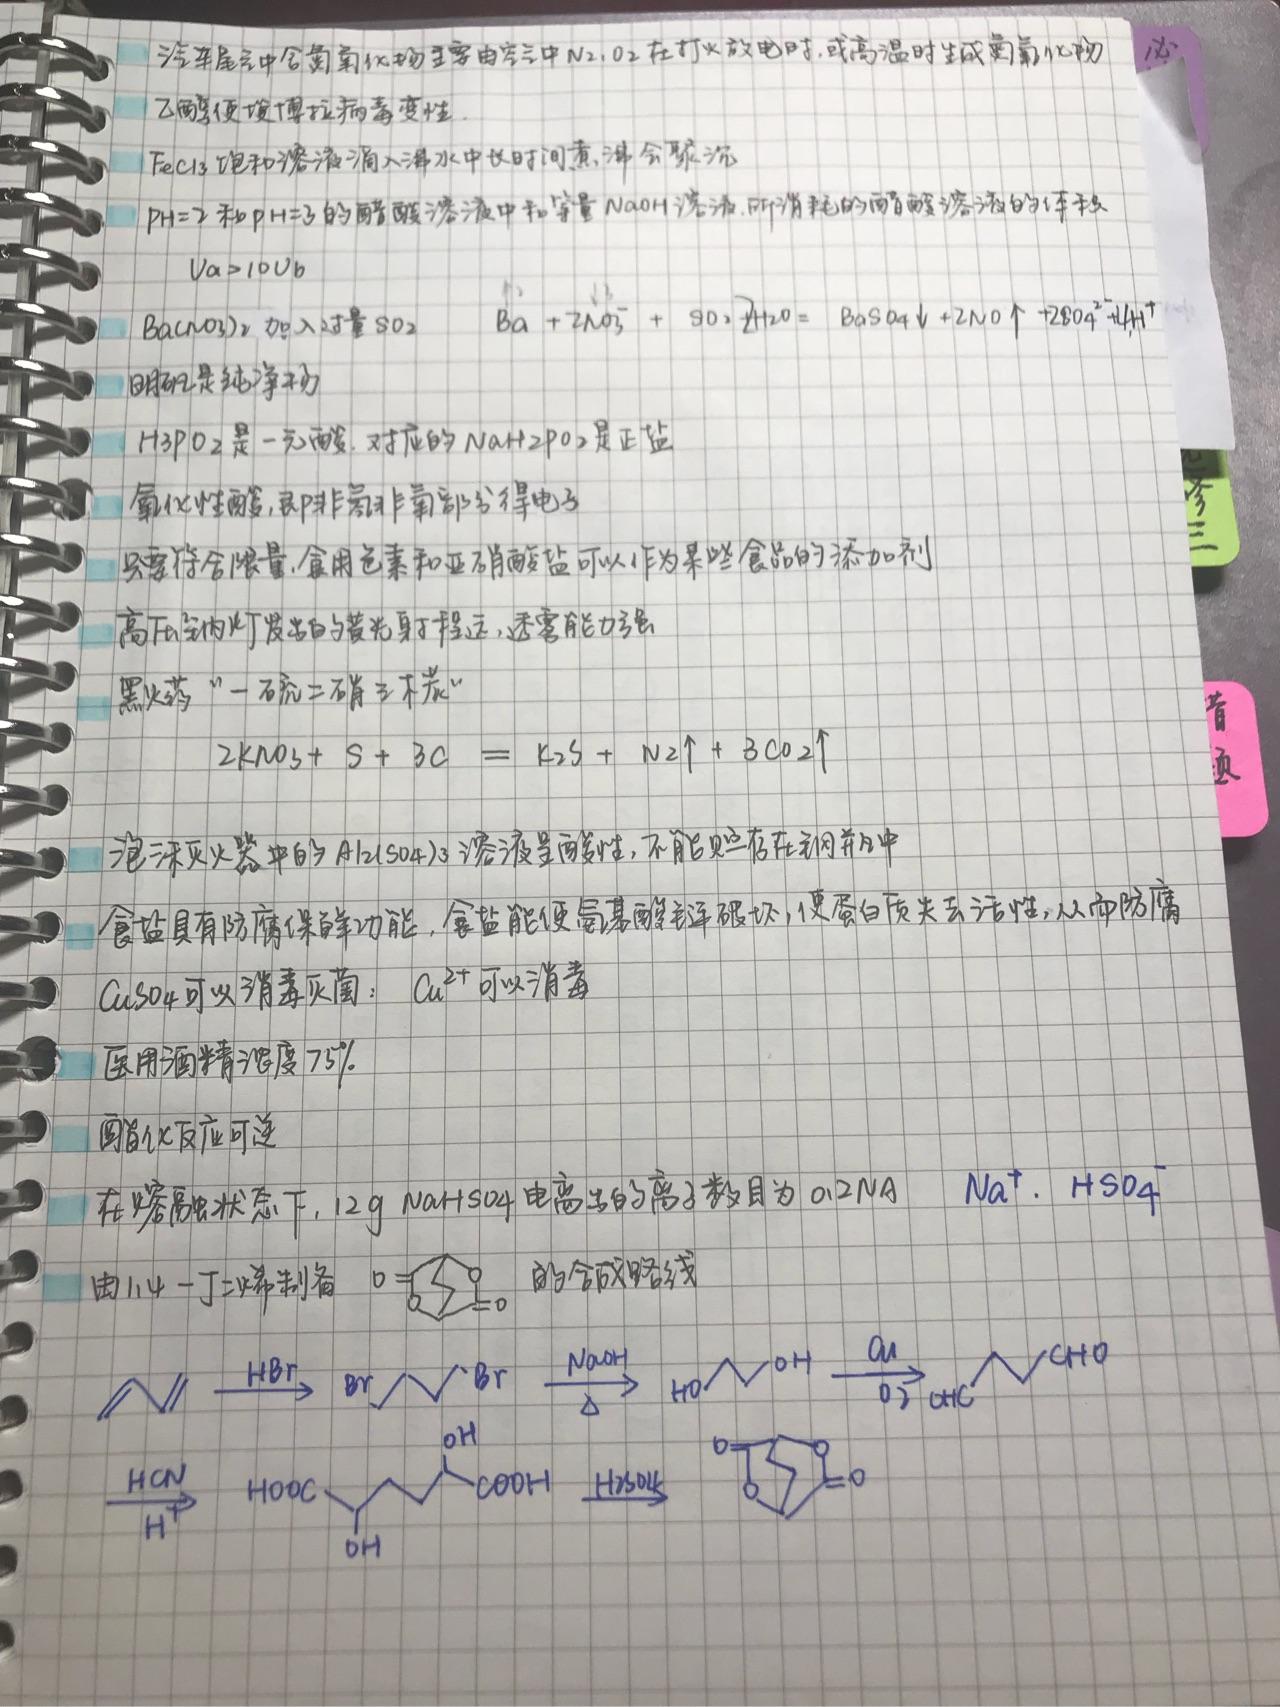 汽车尾气中含氮氧化物主要由空气中N2,O2在打火放电时,或高温时生成氮氧化物
必
乙醇使埃博拉病毒变性.
FeCl3饱和溶液滴入沸水中长时间煮沸会聚沉
PH=2和pH=3的醋酸溶液中和等量NaOH溶液.所消耗的醋酸溶液的体积
Va>10Vb
Ba(NO3)2加入过量SO2 Ba + 2NO3⁻ + SO2 2H2O = BaSO4↓ + 2NO↑ +2SO4²⁻+4H⁺
明矾是纯净物
H3PO2是一元酸.对应的NaH2PO2是正盐
氧化性酸,即非氢非氧部分得电子
修三
只要符合限量,食用色素和亚硝酸盐可以作为某些食品的添加剂
高压钠灯发出的黄光射程远,透雾能力强
黑火药“一硫二硝三木炭”
错题
2KNO3 + S + 3C = K2S + N2↑ + 3CO2↑
泡沫灭火器中的Al2(SO4)3溶液呈酸性,不能贮存在钢瓶中
食盐具有防腐保鲜功能,食盐能使氨基酸链破坏,使蛋白质失去活性,从而防腐
CuSO4可以消毒灭菌: Cu²⁺可以消毒
医用酒精浓度75%
酯化反应可逆
在熔融状态下,12g NaHSO4电离出的离子数目为0.2NA Na⁺. HSO4⁻
由1,4-丁二烯制备 O= O O =O 的合成路线
HBr Br Br NaOH △ HO OH Cu O2 OHC CHO
HCN H⁺ HOOC OH OH COOH H2SO4 O= O O =O